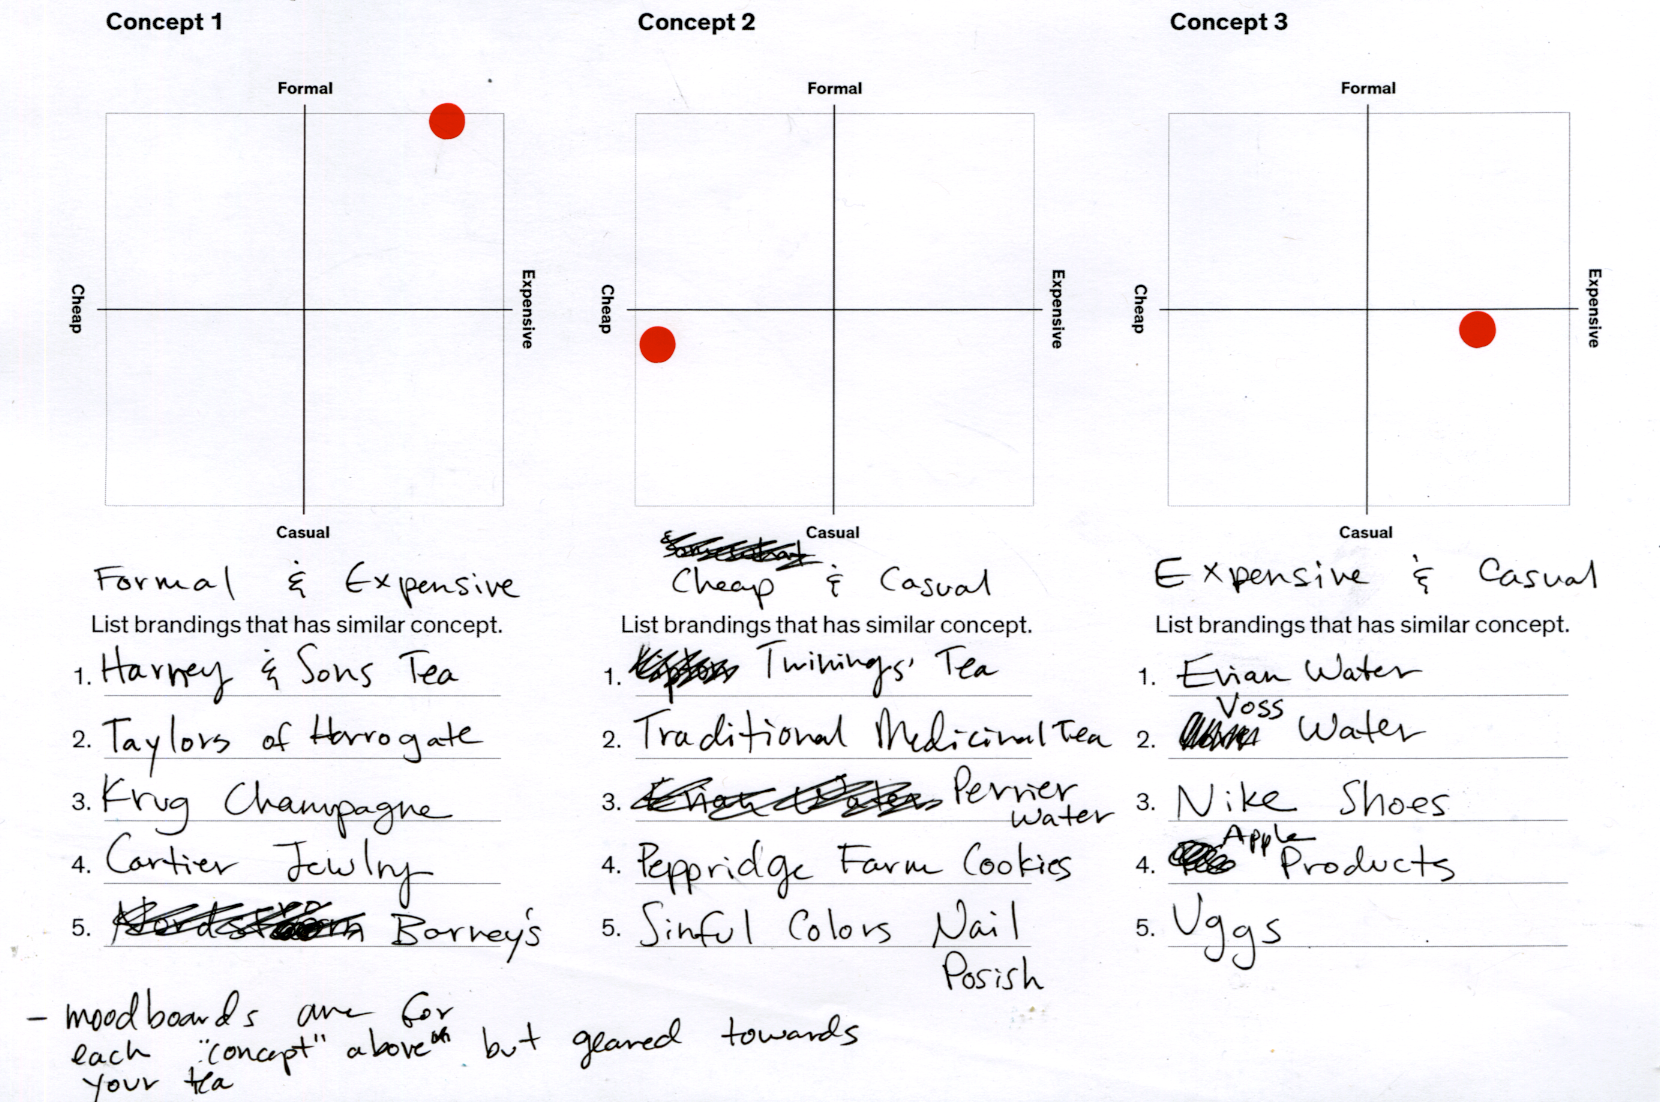 Concept 1
Formal
Cheap
Expensive
Casual
Formal & Expensive
List brandings that has similar concept.
1. Harney & Sons Tea
2. Taylors of Harrogate
3. Krug Champagne
4. Cartier Jewlry
5. Barney's
Concept 2
Formal
Cheap
Expensive
Casual
Cheap & Casual
List brandings that has similar concept.
1. Twinings' Tea
2. Traditional Medicinal Tea
3. Perrier
water
4. Peppridge Farm Cookies
5. Sinful Colors Nail
Posish
Concept 3
Formal
Cheap
Expensive
Casual
Expensive & Casual
List brandings that has similar concept.
1. Evian Water
2. Voss Water
3. Nike Shoes
4. Apple Products
5. Uggs
- moodboards are for
each "concept" above but geared towards
your tea